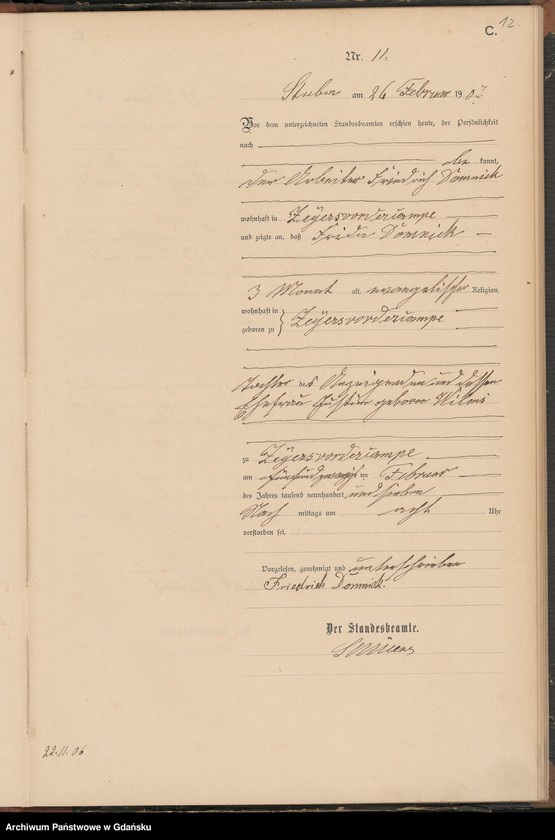 C. 12.
Nr. 11.
Stuba am 26 Februar 1907
Vor dem unterzeichneten Standesbeamten erschien heute, der Persönlichkeit
nach
kannt,
der Arbeiter Friedrich Domnick
wohnhaft in Zeyersvordercampe
und zeigte an, daß Frida Domnick
3 Monat alt, evangelischer Religion,
wohnhaft in
geboren zu } Zeyersvordercampe
Tochter des Anzeigenden und dessen
Ehefrau geboren Wilms
zu Zeyersvordercampe
am fünfundzwanzigsten Februar
des Jahres tausend neunhundert und sieben
Nach mittags um acht Uhr
verstorben sei.
Vorgelesen, genehmigt und unterschrieben
Friedrich Domnick.
Der Standesbeamte.
22.11.06
Archiwum Państwowe w Gdańsku